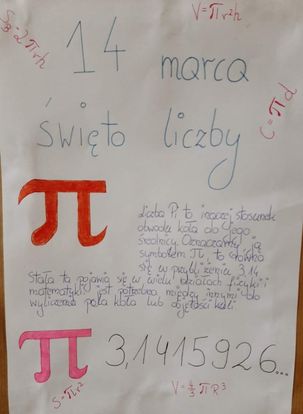 S_B=2πrh
V=πr²h
14 marca
C=πd
święto liczby
π
Liczba Pi to inaczej stosunek
obwodu koła do jego
średnicy. Oznaczamy ją
symbolem π, to równa
się w przybliżeniu 3,14.
Stała ta pojawia się w wielu działach fizyki i
matematyki, jest potrzebna między innymi do
wyliczenia pola koła lub objętości kuli.
π 3,1415926...
S=πr²
V=4/3 πR³